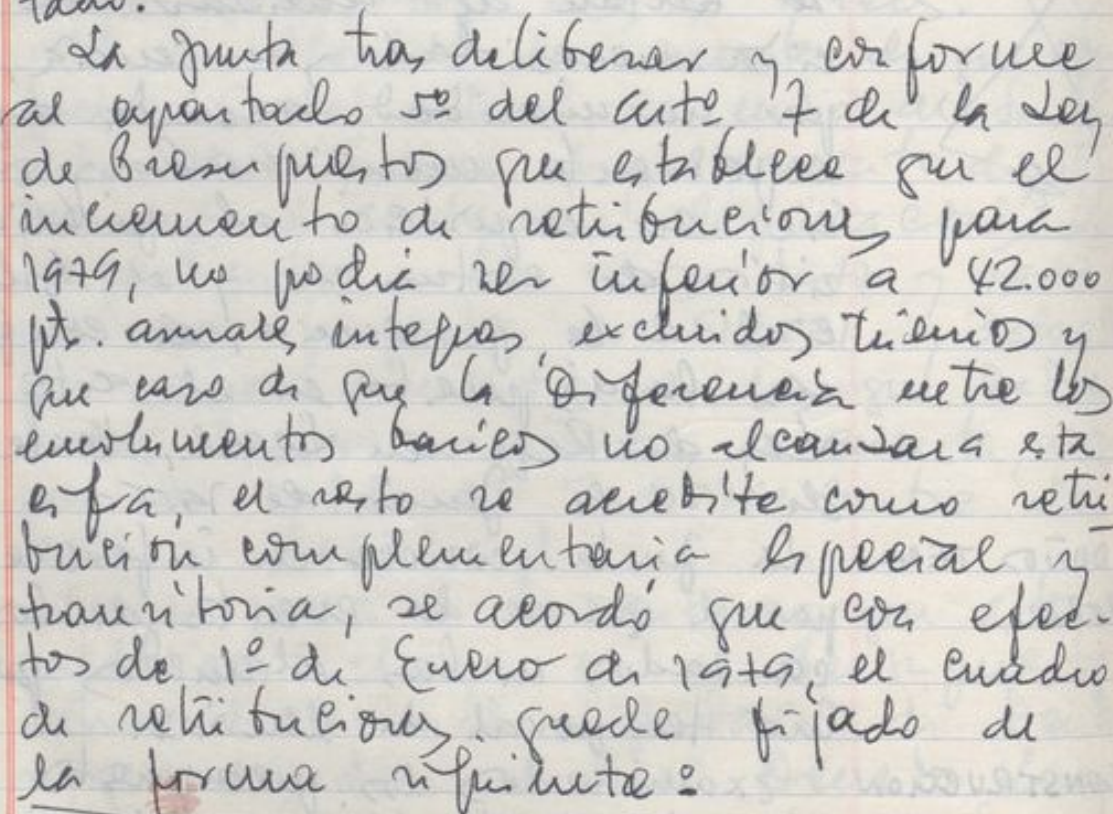 tado.
La Junta tras deliberar y conforme
al apartado 5º del artº 7 de la Ley
de Presupuestos que establece que el
incremento de retribuciones para
1979, no podrá ser inferior a 42.000
pts. anuales integras, excluidos trienios y
que caso de que la Diferencia entre los
emolumentos basicos no alcanzara esta
cifra, el resto se acredite como retri
bución complementaria especial y
transitoria, se acordó que con efec-
tos de 1º de Enero de 1979, el cuadro
de retribuciones quede fijado de
la forma siguiente: